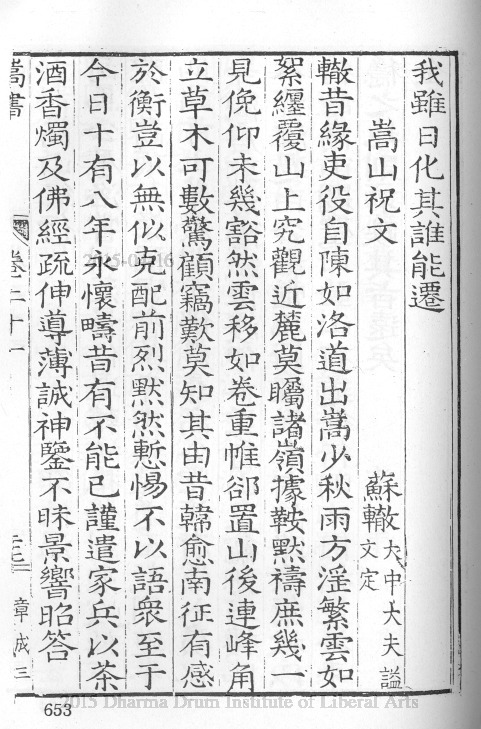 我雖日化其誰能遷
嵩山祝文
蘇轍大中大夫謚文定
轍昔緣吏役自陳如洛道出嵩少秋雨方淫繁雲如
絮纏覆山上究觀近麓莫矚諸嶺據鞍默禱庶幾一
見俛仰未幾豁然雲移如卷重帷卻置山後連峰角
立草木可數驚顧竊歎莫知其由昔韓愈南征有感
於衡豈以無似克配前烈默然慙惕不以語衆至于
今日十有八年永懷疇昔有不能已謹遣家兵以茶
酒香燭及佛經疏伸導薄誠神鑒不昧景響昭答
嵩書
卷二十一
章成三
653
2015 Dharma Drum Institute of Liberal Arts